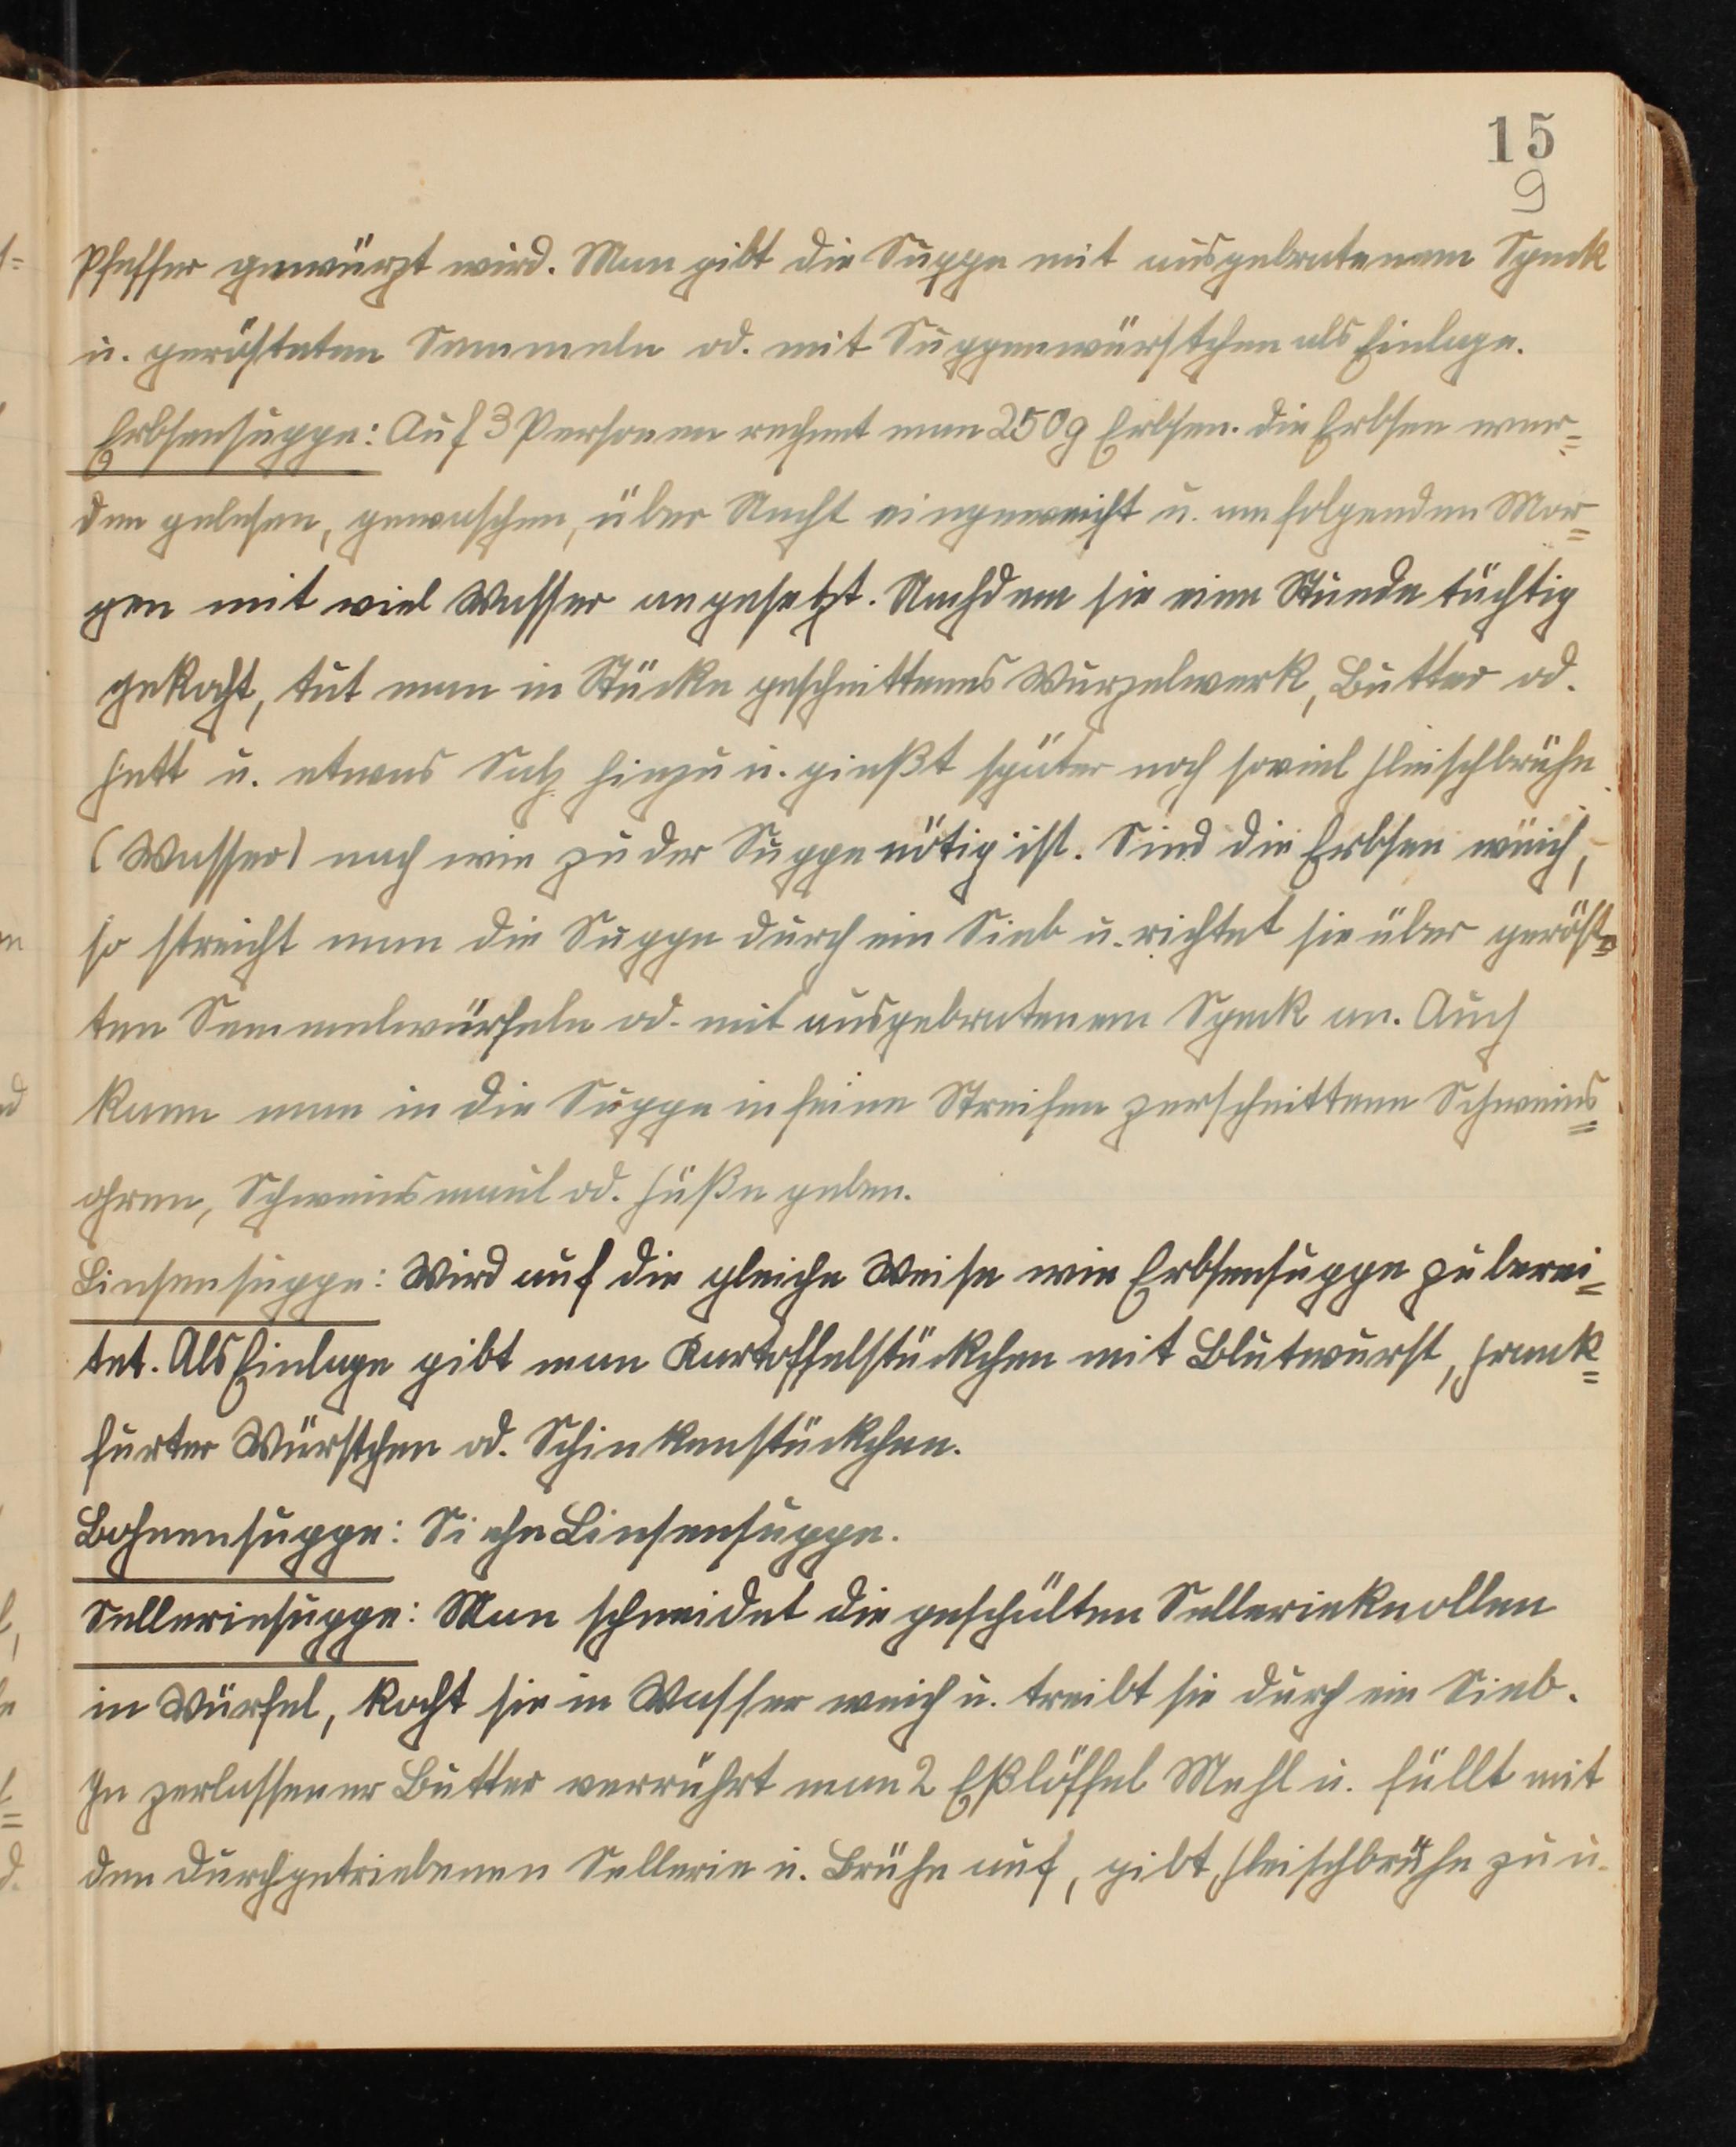 15
9
Pfeffer gewürzt wird. Man gibt die Suppe mit ausgebratenem Speck
u. gerösteten Semmeln od. mit Suppenwürstchen als Einlage.
Erbsensuppe: Auf 3 Personen rechnet man 250g Erbsen. die Erbsen wer=
den gelesen, gewaschen, über Nacht eingeweicht u. am folgenden Mor=
gen mit viel Wasser angesetzt. Nachdem sie eine Stunde tüchtig
gekocht, tut man in Stücke geschnittenes Wurzelwerk, Butter od.
Fett u. etwas Salz hinzu u. gießt später noch soviel Fleischbrühe
(Wasser) nach wie zu der Suppe nötig ist. Sind die Erbsen weich,
so streicht man die Suppe durch ein Sieb u. richtet sie über geröst=
ten Semmelwürfeln od. mit ausgebratenem Speck an. Auch
kann man in die Suppe in feine Streifen zerschnittene Schweins=
ohren, Schweinsmaul od. Füße geben.
Linsensuppe: Wird auf die gleiche Weise wie Erbsensuppe zuberei=
tet. Als Einlage gibt man Kartoffelstückchen mit Blutwurst, Frank=
furter Würstchen od. Schinkenstückchen.
Bohnensuppe: Siehe Linsensuppe.
Selleriesuppe: Man schneidet die geschälten Sellerieknollen
in Würfel, kocht sie in Wasser weich u. treibt sie durch ein Sieb.
In zerlassener Butter verrührt man 2 Eßlöffel Mehl u. füllt mit
den durchgetriebenen Sellerie u. Brühe auf, gibt Fleischbrühe zu u.